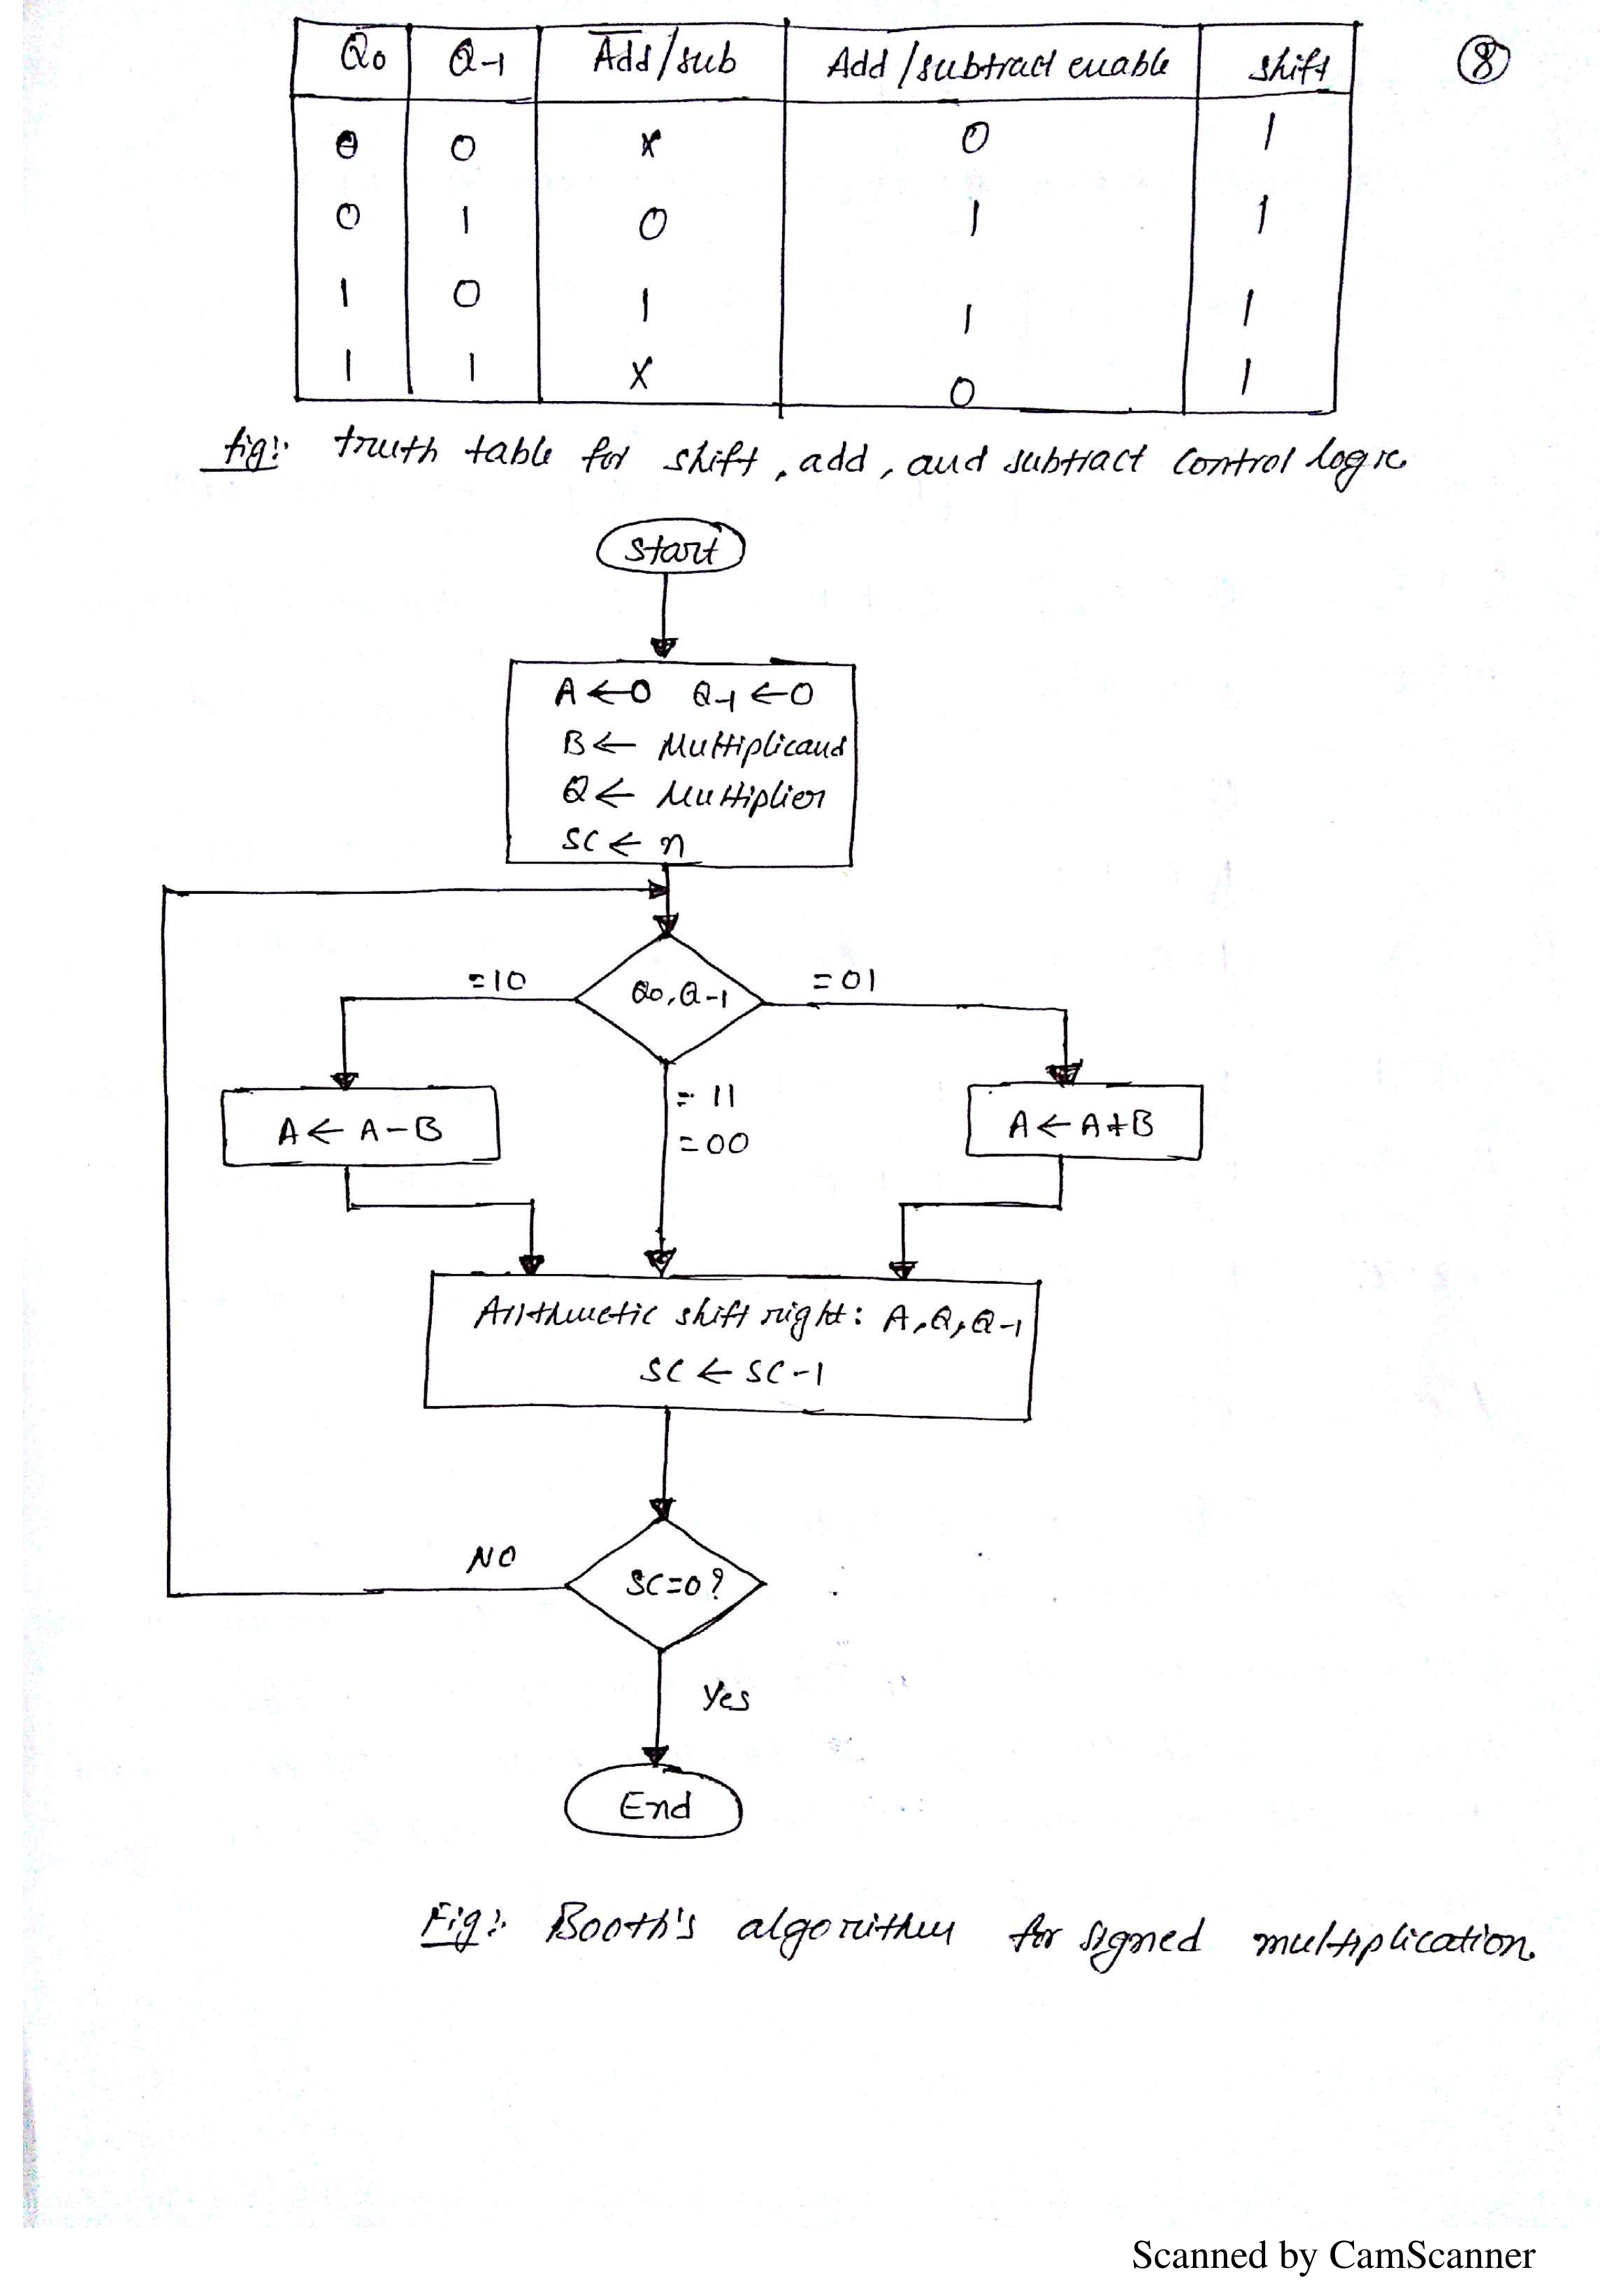 Q0 Q-1 A̅d̅d̅/sub Add/subtract enable shift ⑧
0 0 x 0 1
0 1 0 1 1
1 0 1 1 1
1 1 x 0 1
fig:- truth table for shift, add, and subtract control logic.
Start
A ← 0 Q-1 ← 0
B ← Multiplicand
Q ← Multiplier
SC ← n
=10 Q0,Q-1 =01
= 11
=00
A ← A-B
A ← A+B
Arithmetic shift right: A,Q,Q-1
SC ← SC-1
NO SC=0?
Yes
End
Fig:- Booth's algorithm for signed multiplication.
Scanned by CamScanner